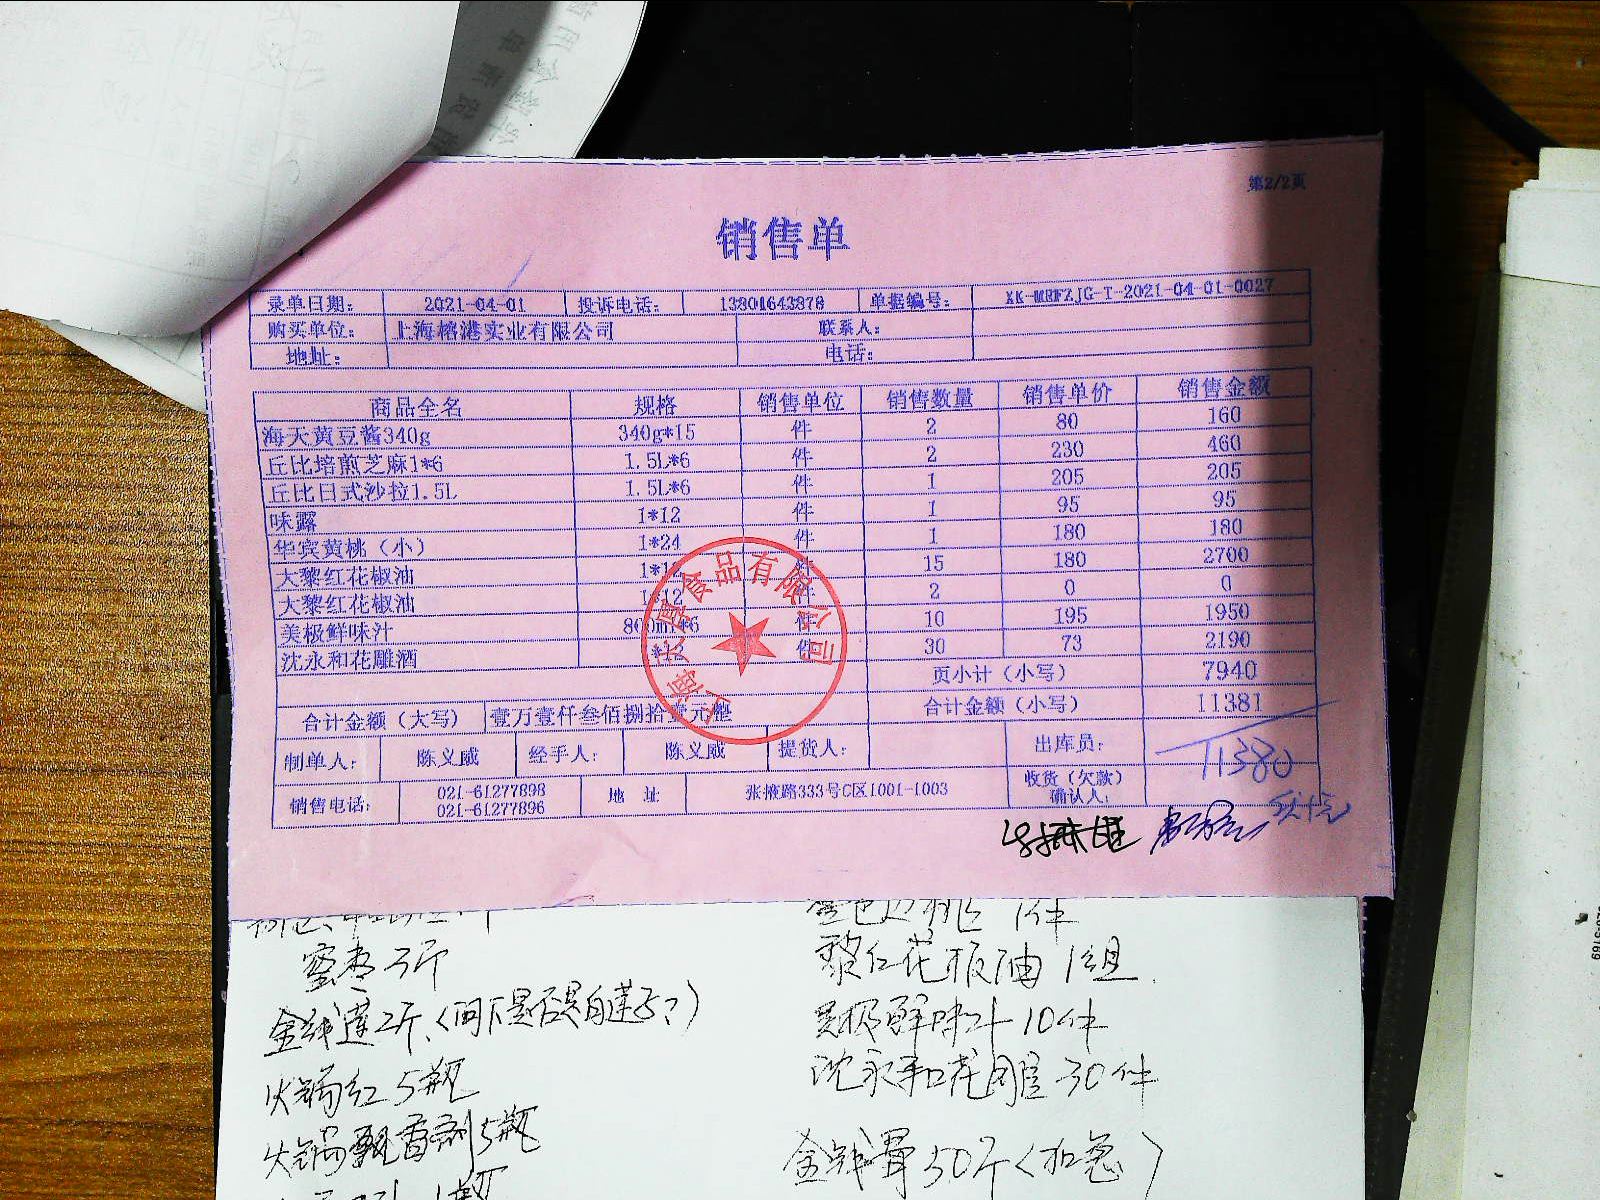 第2/2页
销售单
录单日期: 2021-04-01 投诉电话: 13801643878 单据编号: XK-MRFZJG-T-2021-04-01-0027
购买单位: 上海榕港实业有限公司 联系人:
地址: 电话:
商品全名 规格 销售单位 销售数量 销售单价 销售金额
海天黄豆酱340g 340g*15 件 2 80 160
丘比培煎芝麻1*6 1.5L*6 件 2 230 460
丘比日式沙拉1.5L 1.5L*6 件 1 205 205
味露 1*12 件 1 95 95
华宾黄桃（小） 1*24 件 1 180 180
大黎红花椒油 件 15 180 2700
大黎红花椒油 1*12 件 2 0 0
美极鲜味汁 800ml*6 件 10 195 1950
沈永和花雕酒 件 30 73 2190
页小计（小写） 7940
合计金额（大写） 壹万壹仟叁佰捌拾壹元整 合计金额（小写） 11381
制单人: 陈义威 经手人: 陈义威 提货人: 出库员:
11380
销售电话: 021-61277898 021-61277896 地 址 张掖路333号C区1001-1003 收货（欠款）确认人:
食品有限公司
蜜枣3斤
金钱莲2斤(问下是否是白莲子?)
火锅红5瓶
火锅飘香剂5瓶
1件
黎红花椒油1组
美极鲜味汁10件
沈永和花雕30件
50斤